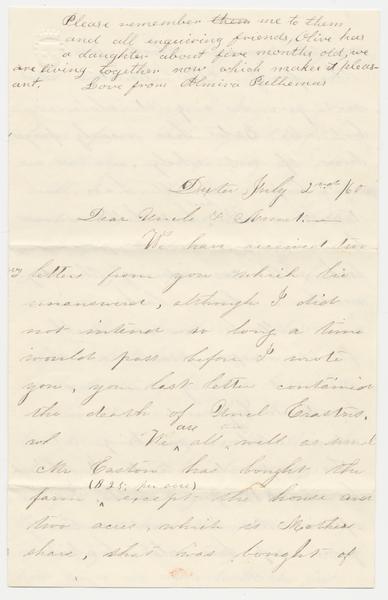 Please remember them me to them
and all enquiring friends, Olive has
a daughter about five months old, we
are living together now which makes it pleas-
ant. Love from Almira Pelhemus
Dexter July 2nd /60
Dear Uncle & Aunt.
We have received two
letters from you which lie
unanswered, although I did
not intend so long a time
would pass before I wrote
you, your last letter contained
the death of Uncle Erastus.
We are all well as usual
Mr Easton has bought the
farm ($25, per acre) except the house and
two acres, which is Mothers
share, that was bought of